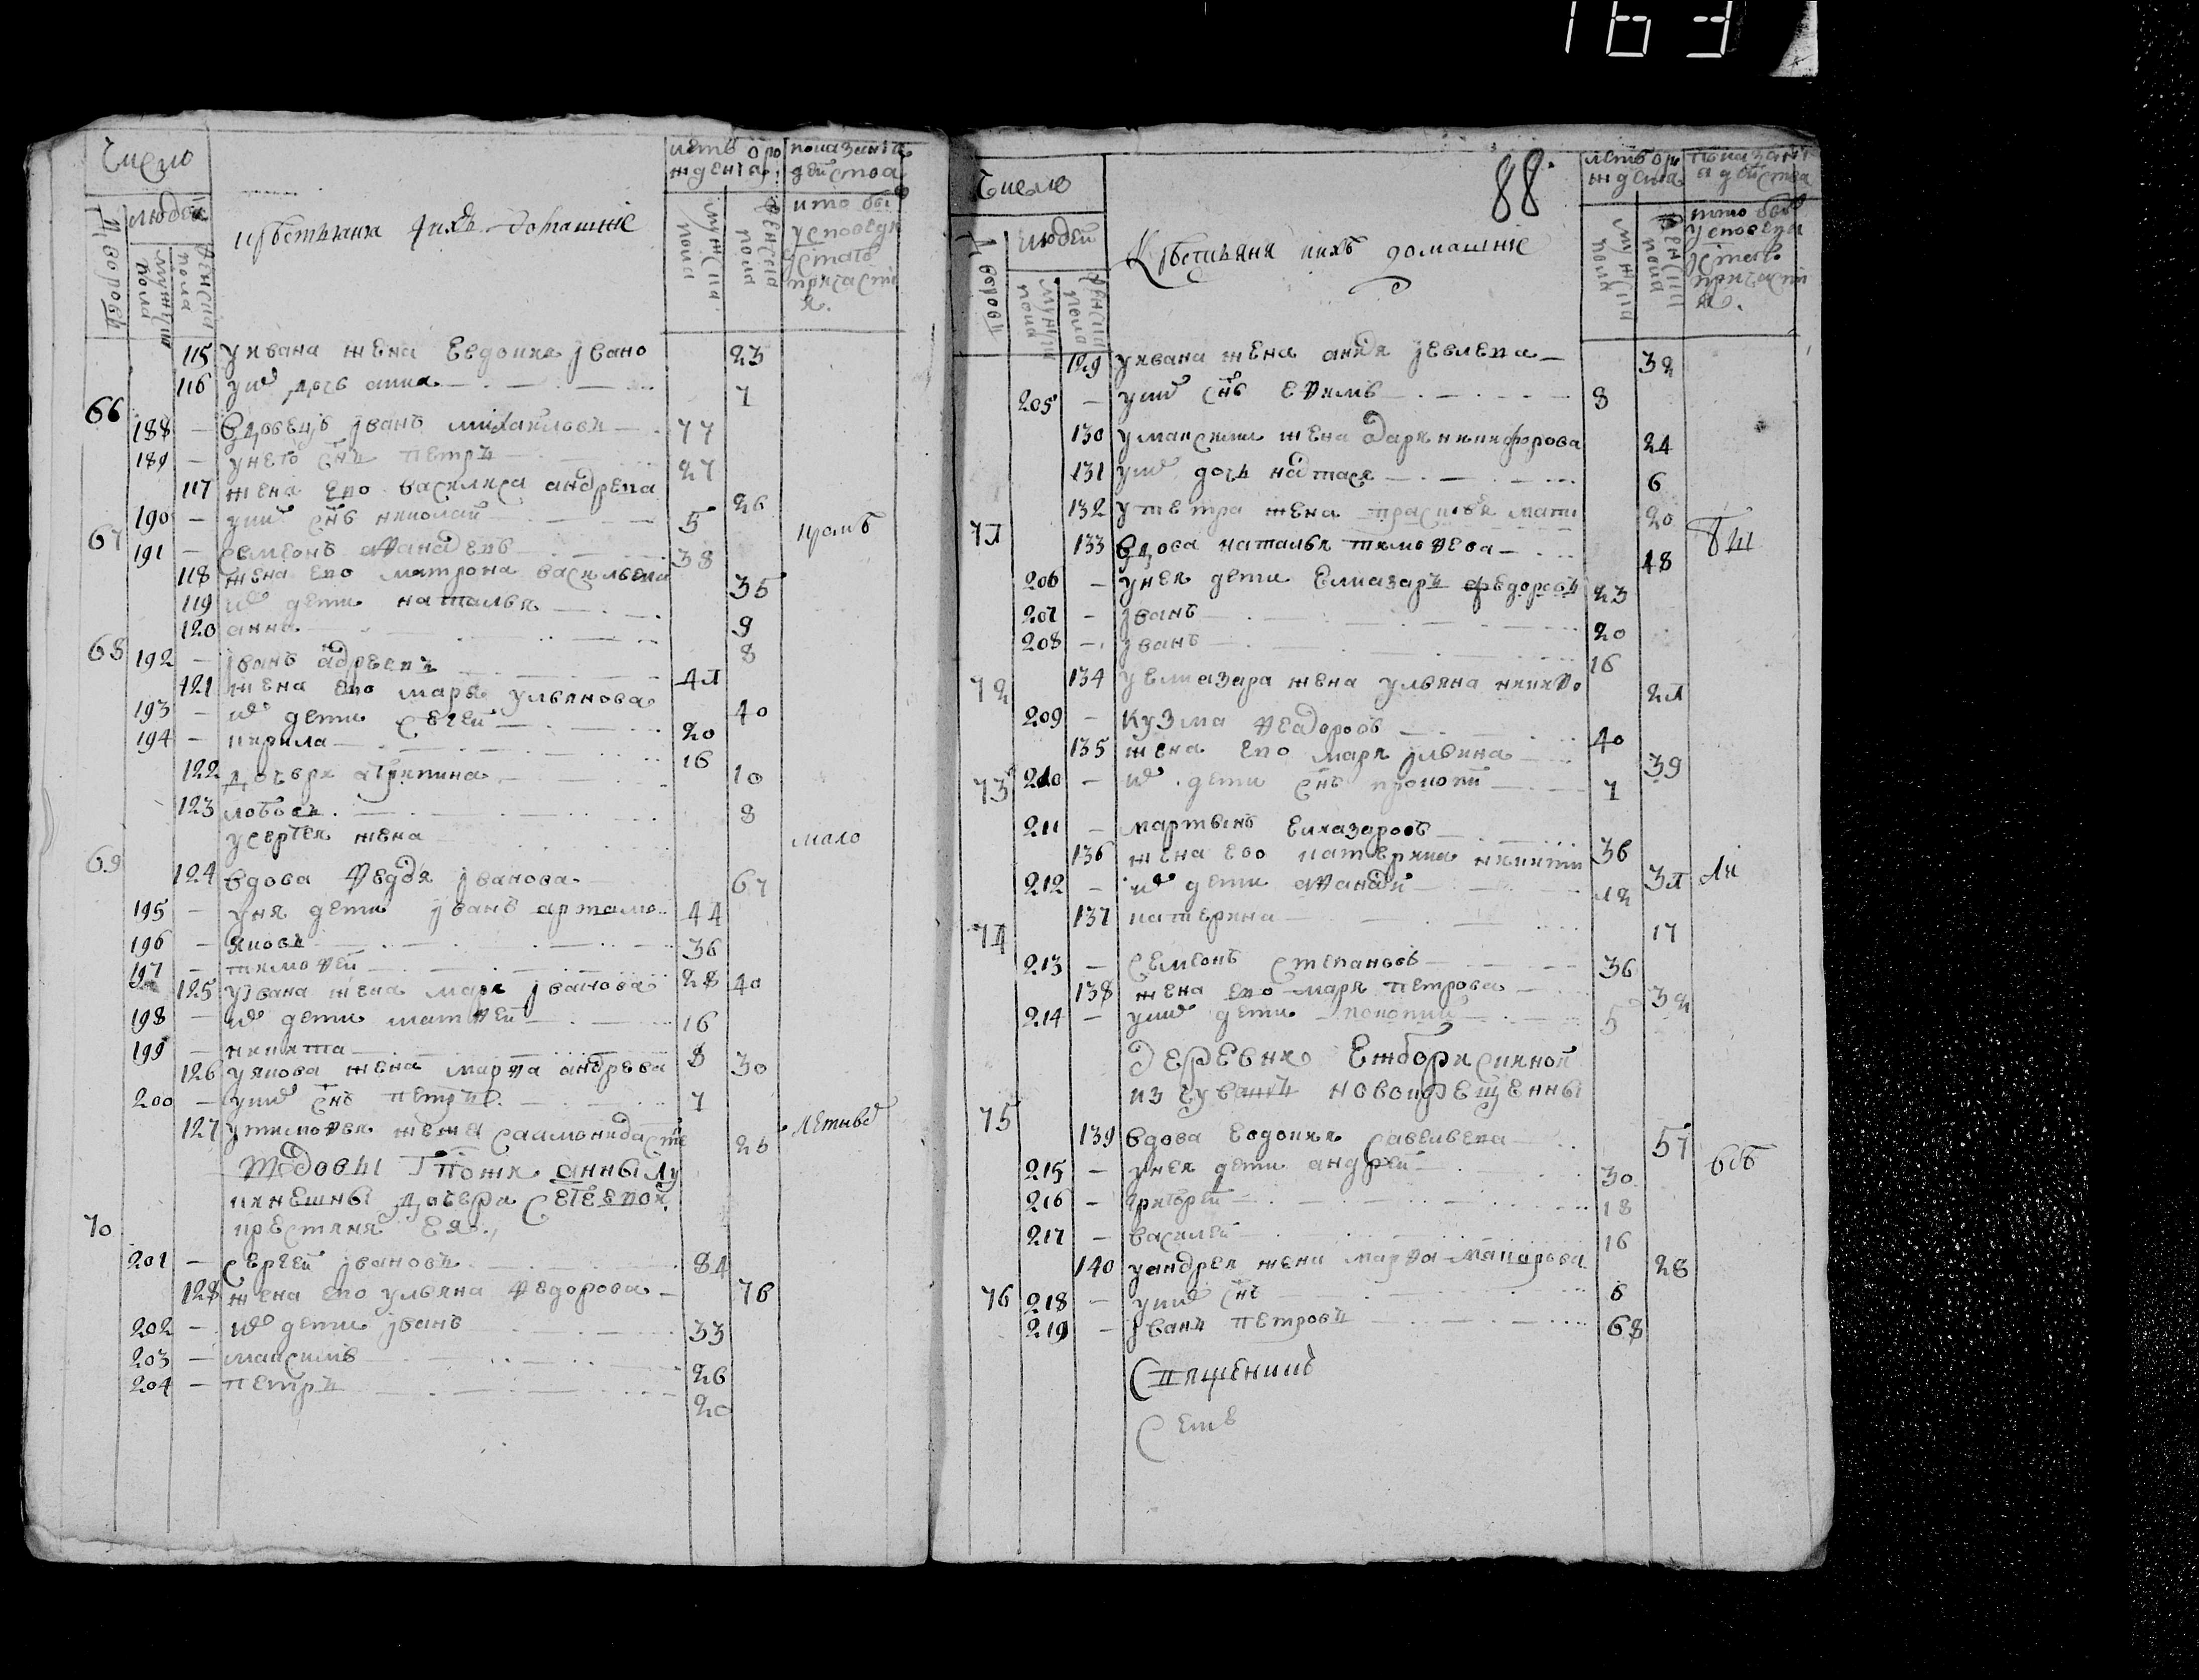 163
Число
людей
дворовъ
мужска пола
женска пола
крестьяня и ихъ домашние
летъ о рождениа
мужска пола
женска пола
показание действа
кто былъ у исповеди и стаго причастия.
115 у ивана жена Евдокия Ивано 23
116 у ниⷯ дочь анна 7
66
188 — вдовецъ Иванъ михаиловъ 77
189 — у него снъ петръ 27
117 жена ево василиса андреева 26
190 — у ниⷯ снъ николай 5
67 кромѣ
191 — семионъ афанасевъ 38
118 жена ево матрона васильева 35
119 иⷯ дети наталья 9
120 анна 8
68
192 — Иванъ адреевъ 41
121 жена ево марья ульянова 40
193 — иⷯ дети сергей 20
194 — кирила 16
122 дочеря агрипина 10
123 любовь 8
у сергея жена мало
69
124 вдова федося Иванова 67
195 — у ня дети Иванъ артамо 44
196 — яковъ 36
197 — тимофей 28
125 у Ивана жена марья Иванова 40
198 — иⷯ дети матфей 16
199 — никита 8
126 у якова жена марфа андрева 30
200 — у ниⷯ снъ петръ 7
127 у тимофея жена 26 летнеⷯ
вдовы гпожи анны лу
кинешны дочери сегеевой
70 крестяня ея.
201 — сергей Ивановъ 84
128 жена ево ульяна федорова 76
202 — иⷯ дети Иванъ 33
203 — максимъ 26
204 — петръ 20
88.
Число
людей
дворовъ
мужска пола
женска пола
Крестьяня и ихъ домашние
летъ о рождениа
мужска пола
женска пола
показание действа
кто былъ у исповеди и стаго причастия.
129 у ивана жена авдя Иевлева 32
205 — у ниⷯ снъ ефимъ 8
130 у максима жена дарья никифорова 24
131 у ниⷯ дочь настасья 6
132 у петра жена прасковья мати 20
71
133 вдова наталья тимофева 48
206 — у нея дети Елиазаръ федоровъ 23
207 — Иванъ 20
208 — Иванъ 16
134 у елиазара жена ульяна никифо 21
72
209 — кузма феадоровъ 40
135 жена ево марья Ильина 39
73 210 — иⷯ дети снъ прокопй 7
211 — мартынъ Елиазаровъ 36
136 жена ево катерина никити 31
212 — иⷯ дети афанасй 12
137 катерина 17
74
213 — семионъ степановъ 36
138 жена ево марья петрова 32
214 — у ниⷯ дети 5
Деревня
из чувашъ новокрещенны
75
139 вдова Евдокия савельева 57
215 — у нея дети андрей 30
216 — григорей 18
217 — василей 16
140 у андрея жена марфа макарова 28
76 218 — у ниⷯ снъ 6
219 — Иванъ петровъ 68